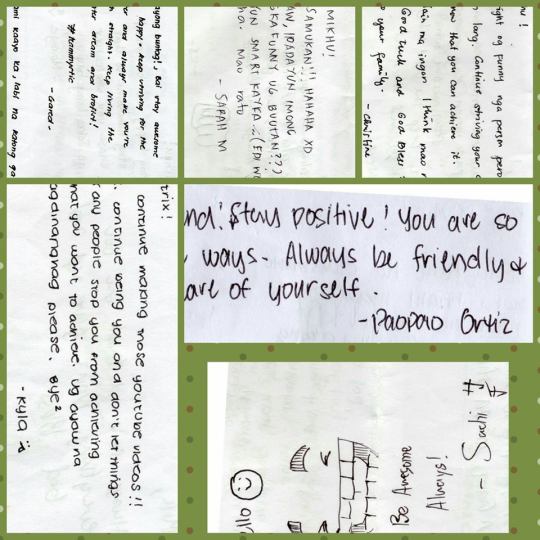 ayong buntagi, Bai stay awesome
happy. Keep striving for the
r and always make you're
h straight. Keep living the
ter dream and brofist!
- Gared -
MIKHU!
SAMUKAN!!! HAHAHA XD
KA FUNNY UG BUUTAN???
YUN SMART KAYKA
- SARAH M
ight og funny nga person pero
long. Continue striving your
now that you can achieve it.
ain na ingon I think mao
Good luck and God Bless
o your family.
- Christine
trix!
continue making those youtube videos!!
. continue being you and don't let things
any people stop you from achieving
hat you want to achieve. Ug ayaw na
please. Bye²
- Kyla
nd! Stay positive! You are so
ways. Always be friendly &
are of yourself.
- Paopao Ortiz
Be Awesome
Always!
- Sarah
#